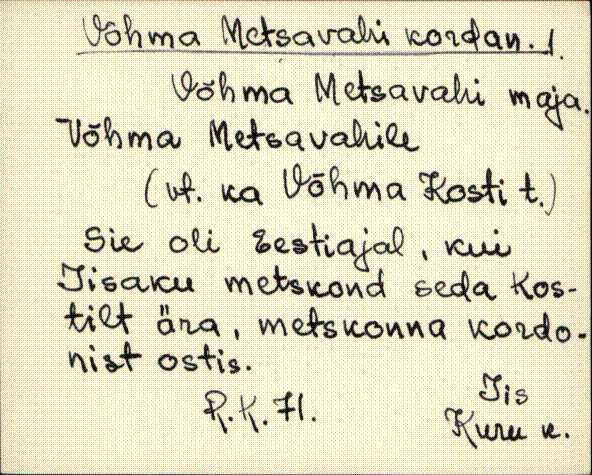 Võhma Metsavahi kordan. 1.
Võhma Metsavahi maja.
Võhma Metsavahile
(vt. ka Võhma Kosti t.)
Sie oli Eestiajal, kui
Iisaku metskond seda Kos-
tilt ära, metskonna kordo-
nist ostis.
R.K. 71.
Iis
Kuru k.